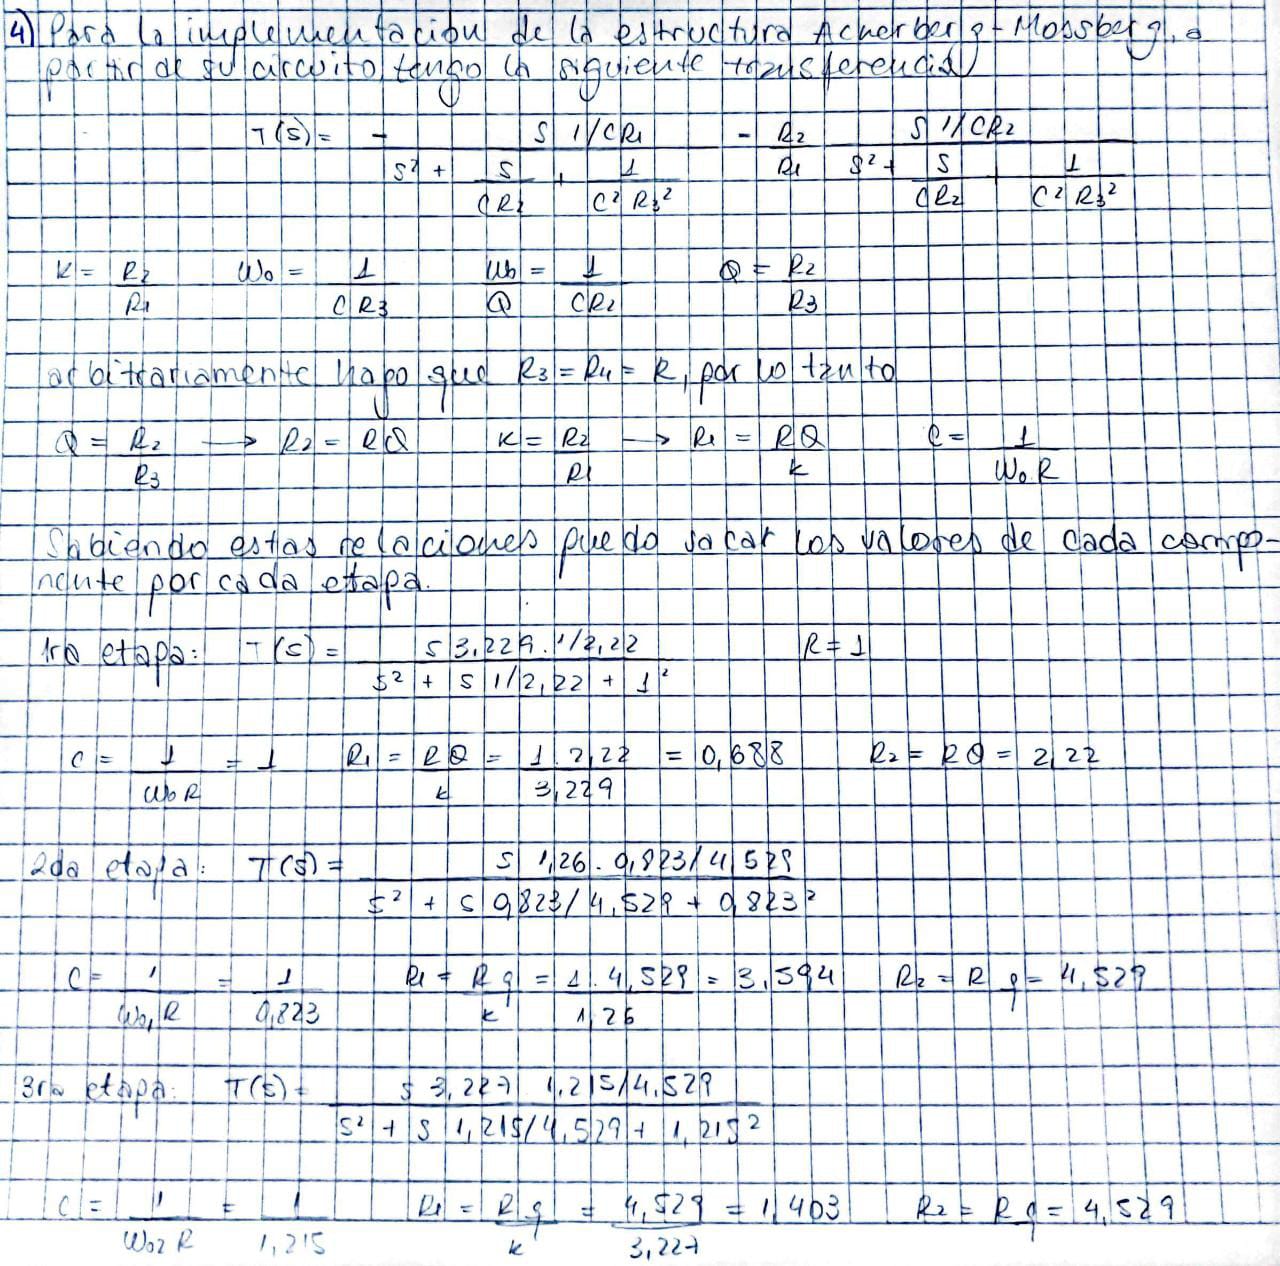 4) Para la implementación de la estructura Ackerberg-Mossberg, a
partir de su circuito tengo la siguiente transferencia
T(s) = - (s 1/CR1) / (s² + s/CR2 + 1/C²R3²) - R2/R1 (s 1/CR2) / (s² + s/CR2 + 1/C²R3²)
K = R2/R1 W0 = 1/CR3 W0/Q = 1/CR2 Q = R2/R3
arbitrariamente hago que R3 = R4 = R, por lo tanto
Q = R2/R3 → R2 = RQ K = R2/R1 → R1 = RQ/k C = 1/W0 R
Sabiendo estas relaciones puedo sacar los valores de cada compo-
nente por cada etapa.
1ra etapa: T(s) = (s 3,229 . 1/2,22) / (s² + s 1/2,22 + 1²) R = 1
C = 1/W0 R = 1 R1 = RQ/k = 1 . 2,22/3,229 = 0,688 R2 = RQ = 2,22
2da etapa: T(s) = (s 1,26 . 0,823/4,529) / (s² + s 0,823/4,529 + 0,823²)
C = 1/W01 R = 1/0,823 R1 = R q/k = 1 . 4,529/1,26 = 3,594 R2 = R q = 4,529
3ra etapa: T(s) = (s 3,227 1,215/4,529) / (s² + s 1,215/4,529 + 1,215²)
C = 1/W02 R = 1/1,215 R1 = R q/k = 4,529/3,227 = 1,403 R2 = R q = 4,529